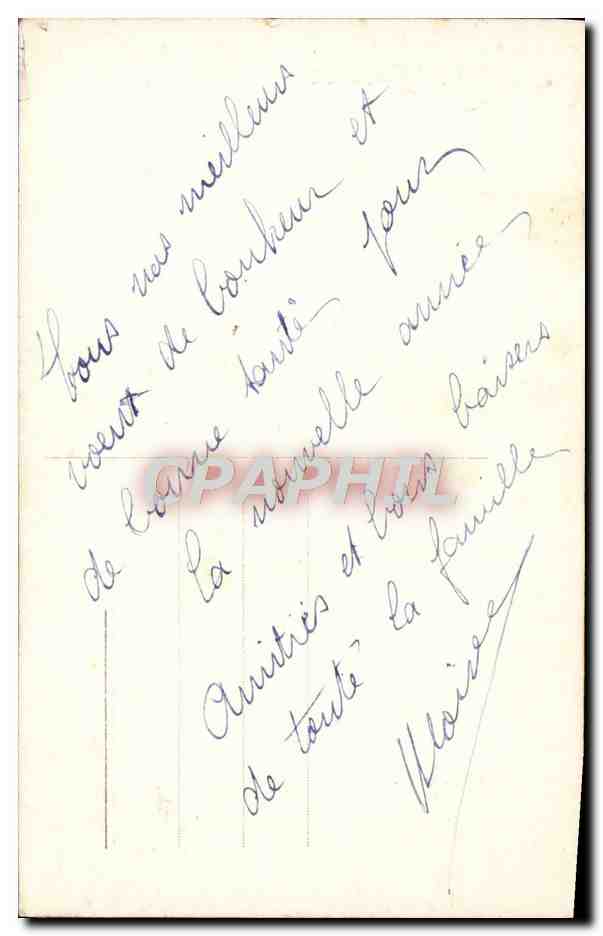 Tous nos meilleurs
voeux de bonheur et
de bonne santé pour
la nouvelle année
Amitiés et bons baisers
de toute la famille
CPAPHIL